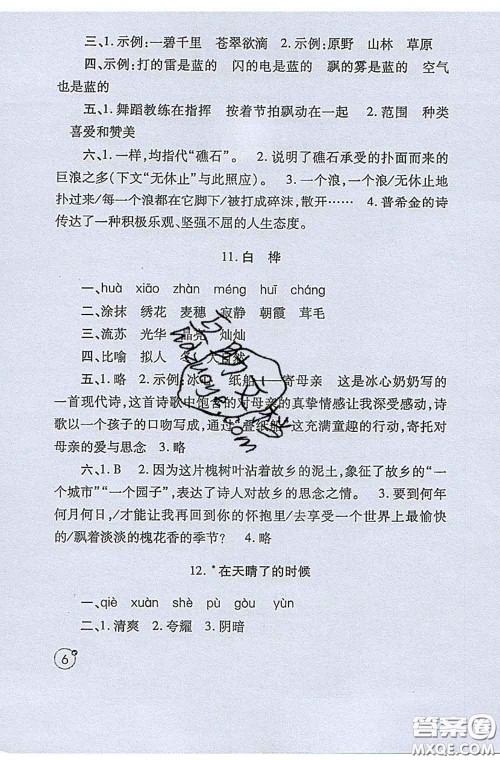 三、1. 示例:一碧千里 苍翠欲滴 2. 示例:原野 山林 草原
四、示例:打的雷是蓝的 闪的电是蓝的 飘的雾是蓝的 空气
也是蓝的
五、1. 舞蹈教练在指挥 按着节拍飘动在一起 2. 范围 种类
喜爱和赞美
六、1. 一样,均指代“礁石”。 2. 说明了礁石承受的扑面而来的
巨浪之多(下文“无休止”与此照应)。 3. 一个浪,一个浪/无休止地
扑过来/每一个浪都在它脚下/被打成碎沫,散开…… 4. 普希金的诗
传达了一种积极乐观、坚强不屈的人生态度。
11. 白 桦
一、huà xiāo zhàn méng huī cháng
二、涂抹 绣花 麦穗 寂静 朝霞 茸毛
三、流苏 光华 晶亮 灿灿
四、比喻 拟人 大自然
五、1. 略 2. 示例:冰心 纸船——寄母亲 这是冰心奶奶写的
一首现代诗,这首诗歌中饱含的对母亲的真挚情感让我深受感动,诗
歌以一个孩子的口吻写成,通过“叠纸船”这充满童趣的行动,寄托对
母亲的爱与思念 3. 略
六、1. B 2. 因为这片槐树叶沾着故乡的泥土,象征了故乡的“一
个城市”“一个园子”,表达了诗人对故乡的思念之情。 3. 要到何年
何月何日,/才能让我再回到你的怀抱里/去享受一个世界上最愉快
的/飘着淡淡的槐花香的季节? 4. 略
12. *在天晴了的时候
一、qiè xuàn shè pù gòu yùn
二、1. 清爽 2. 夸耀 3. 阴暗
6
答案卷
MXQE.COM